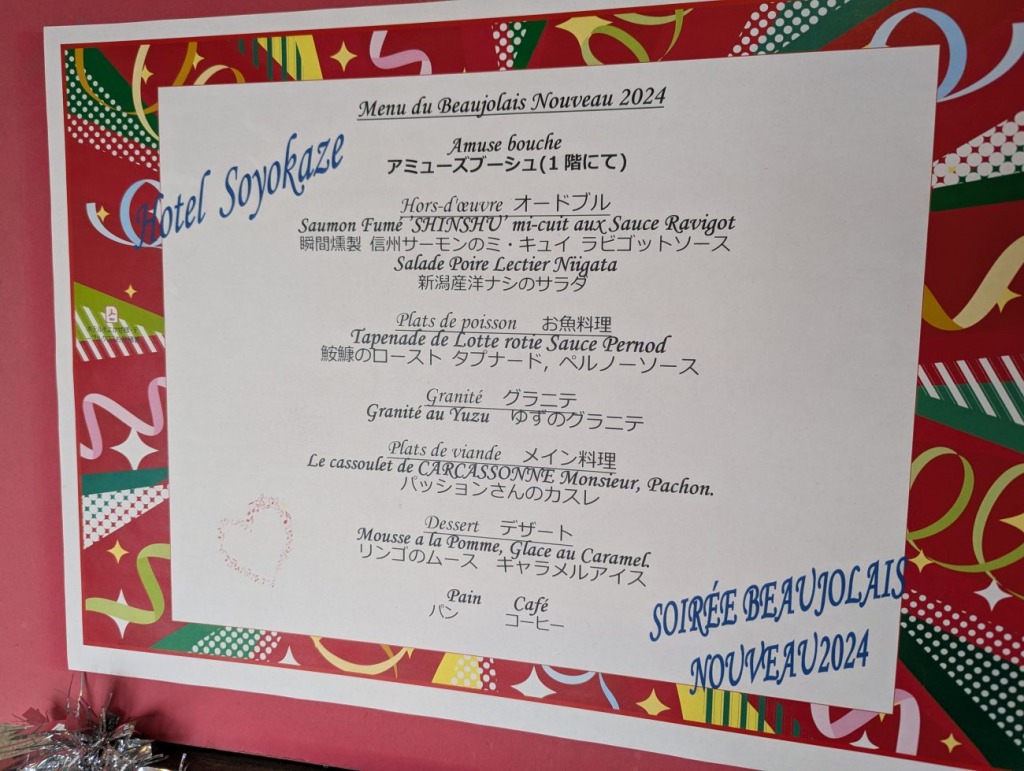 Menu du Beaujolais Nouveau 2024
Amuse bouche
アミューズブーシュ(1階にて)
Hotel Soyokaze
Hors-d'œuvre オードブル
Saumon Fumé 'SHINSHU' mi-cuit aux Sauce Ravigot
瞬間燻製 信州サーモンのミ・キュイ ラビゴットソース
Salade Poire Lectier Niigata
新潟産洋ナシのサラダ
Plats de poisson お魚料理
Tapenade de Lotte rotie Sauce Pernod
鮟鱇のロースト タプナード, ペルノーソース
Granité グラニテ
Granité au Yuzu ゆずのグラニテ
Plats de viande メイン料理
Le cassoulet de CARCASSONNE Monsieur, Pachon.
パッションさんのカスレ
Dessert デザート
Mousse a la Pomme, Glace au Caramel.
リンゴのムース キャラメルアイス
Pain Café
パン コーヒー
SOIRÉE BEAUJOLAIS
NOUVEAU2024